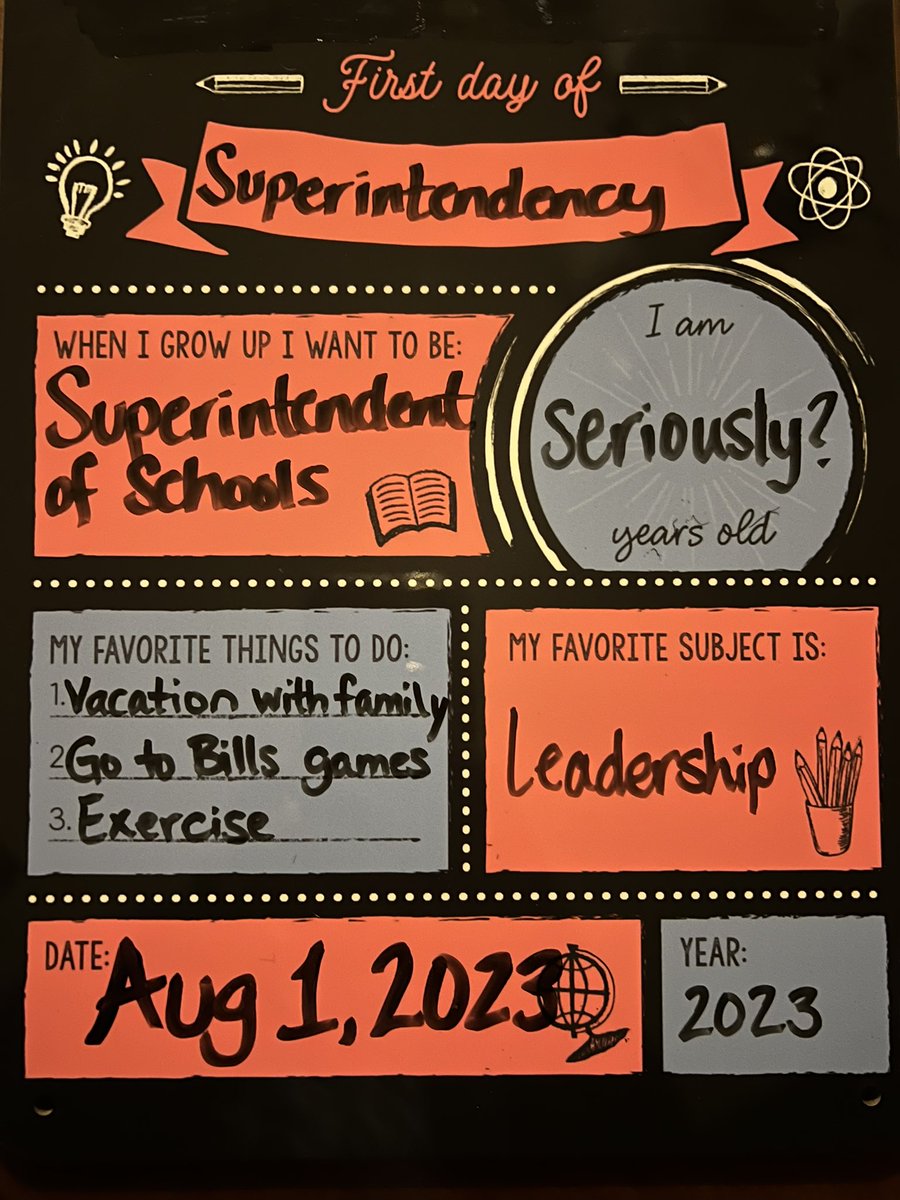 First day of
Superintendency
WHEN I GROW UP I WANT TO BE:
Superintendent
of Schools
I am
seriously?
years old
MY FAVORITE THINGS TO DO:
1. Vacation with family
2. Go to Bills games
3. Exercise
MY FAVORITE SUBJECT IS:
Leadership
DATE: Aug 1, 2023
YEAR:
2023